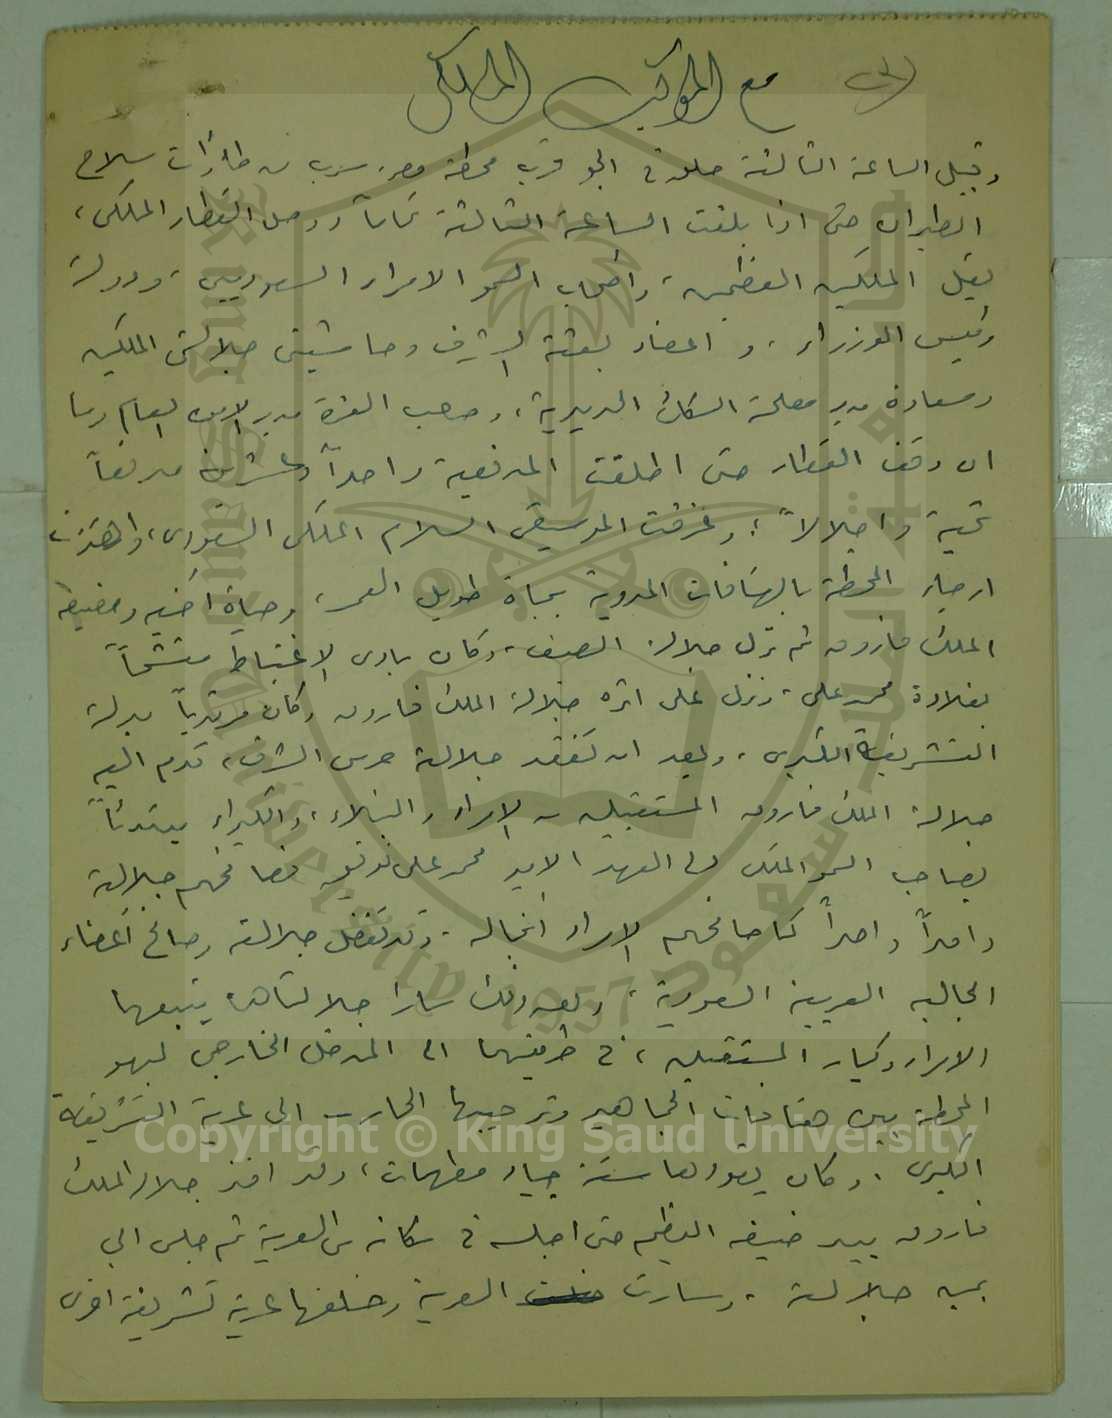 مع الموكب الملكى
وقبيل الساعة الثالثة حلق فى الجو قرب محطة مصر سرب من طائرات سلاح
الطيران حتى اذا بلغت الساعة الثالثة تماماً ووصل القطار الملكى،
يقل الملكين العظيمين، واصحاب السمو الامراء السعوديين، ودولة
رئيس الوزراء، و اعضاء بعثة الشرف وحاشيتى جلالتى الملكين
وسعادة مدير مصلحة السكك الحديدية، وصاحب العزة مدير الامن العام وما
ان وقف القطار حتى اطلقت المدفعية واحداً وعشرين مدفعاً
تحية واجلالاً، وعزفت الموسيقى السلام الملكى السعودى، واهتزت
ارجاء المحطة بالهتافات المدوية بحياة طويل العمر، وحياة اخيه ومضيفه
الملك فاروق ثم نزل جلالة الضيف، وكان بادى الاغتباط متشحاً
بقلادة محمد على، ونزل على اثره جلالة الملك فاروق وكان مرتدياً بدلة
التشريفة الكبرى، وبعد ان تفقد جلالته حرس الشرف، قدم اليه
جلالة الملك فاروق المستقبلين من الامراء والنبلاء، والكبراء مبتدئاً
بصاحب السمو الملكى ولى العهد الامير محمد على توفيق فصافحهم جلالته
واحداً واحداً كما صافحهم الامراء انجاله. وقد تفضل جلالته وصافح اعضاء
الجالية العربية السعودية، وبعد ذلك سارا جلالتاهما يتبعهما
الامراء وكبار المستقبلين، فى طريقهما الى المدخل الخارجى لبهو
المحطة بين هتافات الجماهير وترحيبها الحار الى عربة التشريفة
الكبرى. وكان يقودها ستة جياد مطهمات، وقد اخذ جلالة الملك
فاروق بيد ضيفه العظيم حتى اجلسه فى مكانه من العربة ثم جلس الى
يمين جلالته، وسارت العربة وخلفها عربة تشريفة اخرى
Copyright © King Saud University
King Saud University
جامعة الملك سعود
1957